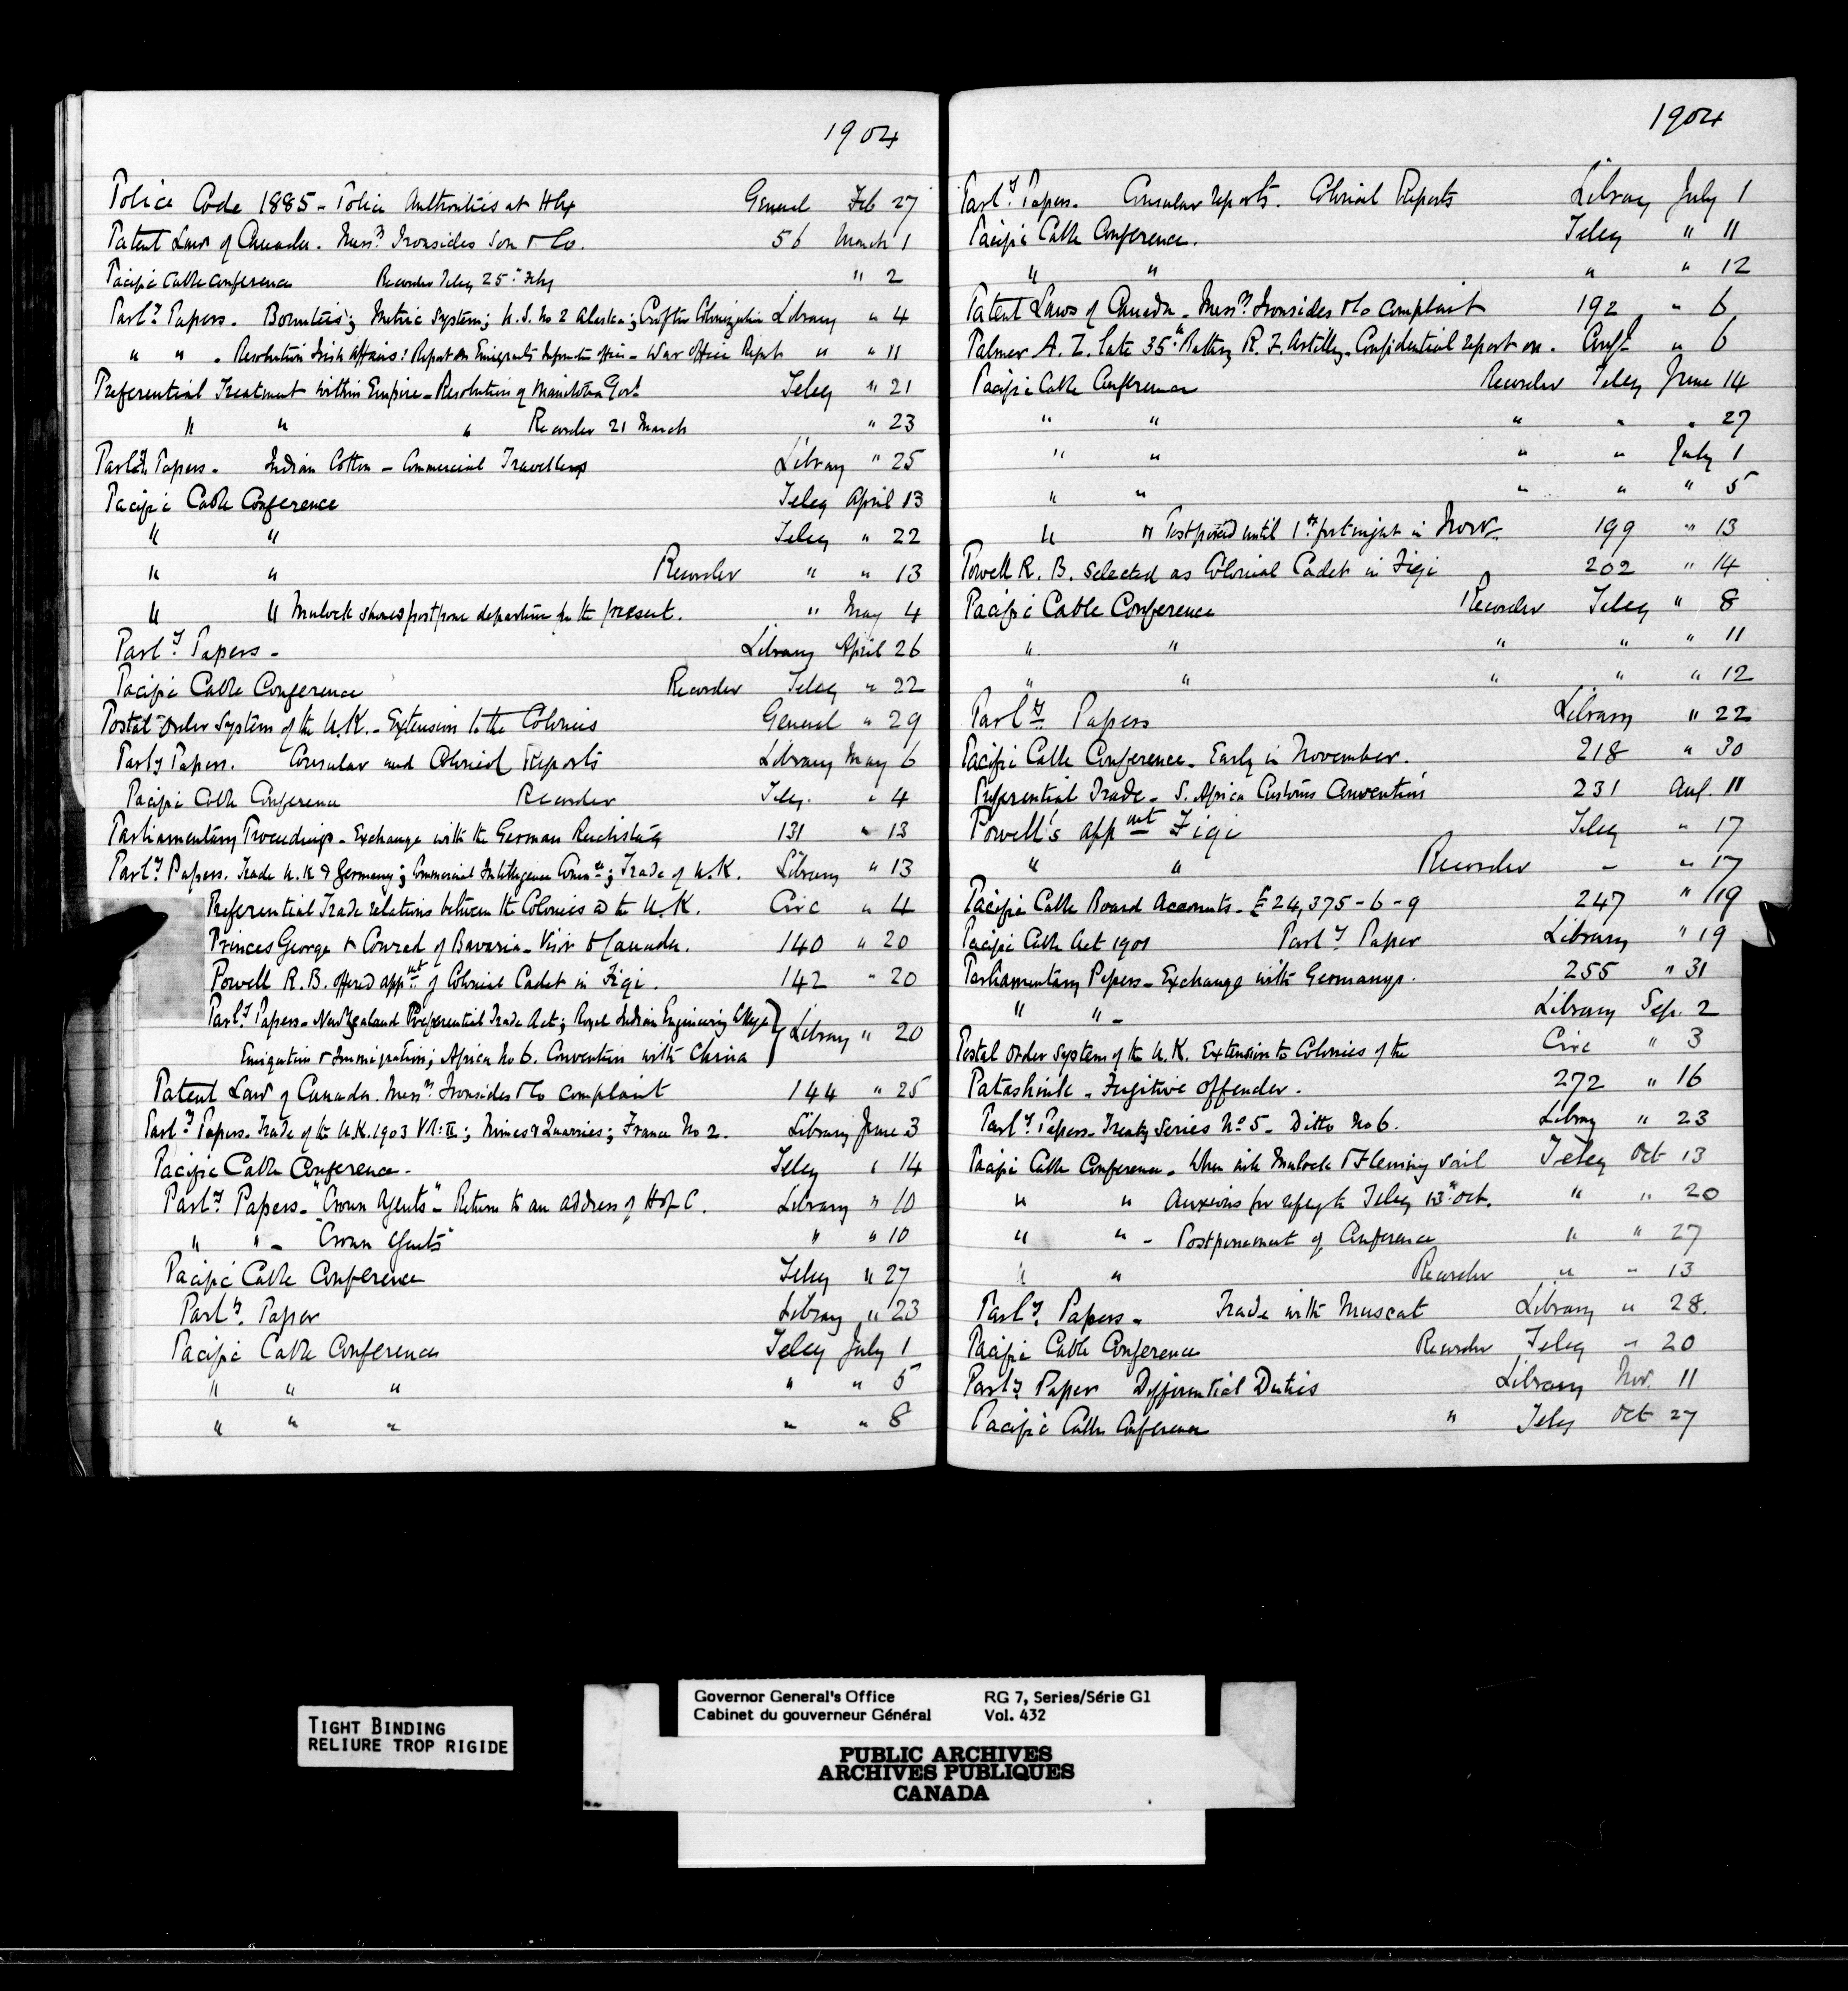 1904
Police Code 1885 - Police Authorities at Hfx General Feb 27
Patent Law of Canada. Messrs Ironsides Son & Co. 56 March 1
Pacific Cable Conference Recorder Teleg 25th Feby " 2
Parly Papers. Bounties; Metric System; U.S. No 2 Alaska; Crofter Colonization Library " 4
" " . Resolution Irish Affairs: Report on Emigrants Information Office - War Office Report " " 11
Preferential Treatment within Empire - Resolution of Manitoba Govt Teleg " 21
" " " Recorder 21 March " 23
Parly Papers. Indian Cotton - Commercial Travellers Library " 25
Pacific Cable Conference Teleg April 13
" " Teleg " 22
" " Recorder " " 13
" " Mulock should postpone departure for the present. " May 4
Parly Papers - Library April 26
Pacific Cable Conference Recorder Teleg " 22
Postal Order System of the U.K. - Extension to the Colonies General " 29
Parly Papers. Consular and Colonial Reports Library May 6
Pacific Cable Conference Recorder Teleg. " 4
Parliamentary Proceedings - Exchange with the German Reichstag 131 " 13
Parly Papers. Trade U.K & Germany; Commercial Intelligence Comtee; Trade of U.K. Library " 13
Preferential Trade relations between the Colonies & the U.K. Circ " 4
Princes George & Conrad of Bavaria - Visit to Canada. 140 " 20
Powell R.B. offered appmt of Colonial Cadet in Figi. 142 " 20
Parly Papers - New Zealand Preferential Trade Act; Royal Indian Engineering College; Library " 20
Emigration & Immigration; Africa No 6. Convention with China
Patent Law of Canada. Messrs Ironsides & Co complaint 144 " 25
Parly Papers. Trade of the U.K. 1903 Vl: II; Mines & Quarries; France No 2. Library June 3
Pacific Cable Conference. Teleg " 14
Parly Papers - "Crown Agents" - Return to an address of H of C. Library " 10
" " - "Crown Agents" " " 10
Pacific Cable Conference Teleg " 27
Parly Paper Library " 23
Pacific Cable Conference Teleg July 1
" " " " " 5
" " " " " 8
1904
Parly Papers. Consular reports. Colonial Reports Library July 1
Pacific Cable Conference. Teleg " 11
" " " " 12
Patent Laws of Canada - Messrs Ironsides & Co complaint 192 " 6
Palmer A. Z. late 35th Battery R. F. Artillery - Confidential report on. Conf " 6
Pacific Cable Conference Recorder Teleg June 14
" " " " " 27
" " " " July 1
" " " " " 5
" " Postponed until 1st fortnight in Novr. 199 " 13
Powell R. B. Selected as Colonial Cadet in Figi 202 " 14
Pacific Cable Conference Recorder Teleg " 8
" " " " " 11
" " " " " 12
Parly Papers Library " 22
Pacific Cable Conference - Early in November. 218 " 30
Preferential Trade - S. Africa Customs Convention 231 Aug. 11
Powell's appmt Figi Teleg " 17
" " Recorder - " 17
Pacific Cable Board Accounts - £24,375-6-9 247 " 19
Pacific Cable Act 1901 Parly Paper Library " 19
Parliamentary Papers - Exchange with Germany. 255 " 31
" " - Library Sep. 2
Postal Order System of the U.K. Extension to Colonies of the Circ " 3
Patashink - Fugitive Offender. 272 " 16
Parly Papers - Treaty Series No 5 - Ditto No 6. Library " 23
Pacific Cable Conference - When will Mulock & Fleming sail Teleg Oct 13
" " Anxious for reply to Teleg 13th Oct. " " 20
" " - Postponement of Conference " " 27
" " Recorder " " 13
Parly Papers - Trade with Muscat Library " 28.
Pacific Cable Conference Recorder Teleg " 20
Parly Paper Differential Duties Library Nov. 11
Pacific Cable Conference " Teleg Oct 27
TIGHT BINDING
RELIURE TROP RIGIDE
Governor General's Office RG 7, Series/Série G1
Cabinet du gouverneur Général Vol. 432
PUBLIC ARCHIVES
ARCHIVES PUBLIQUES
CANADA